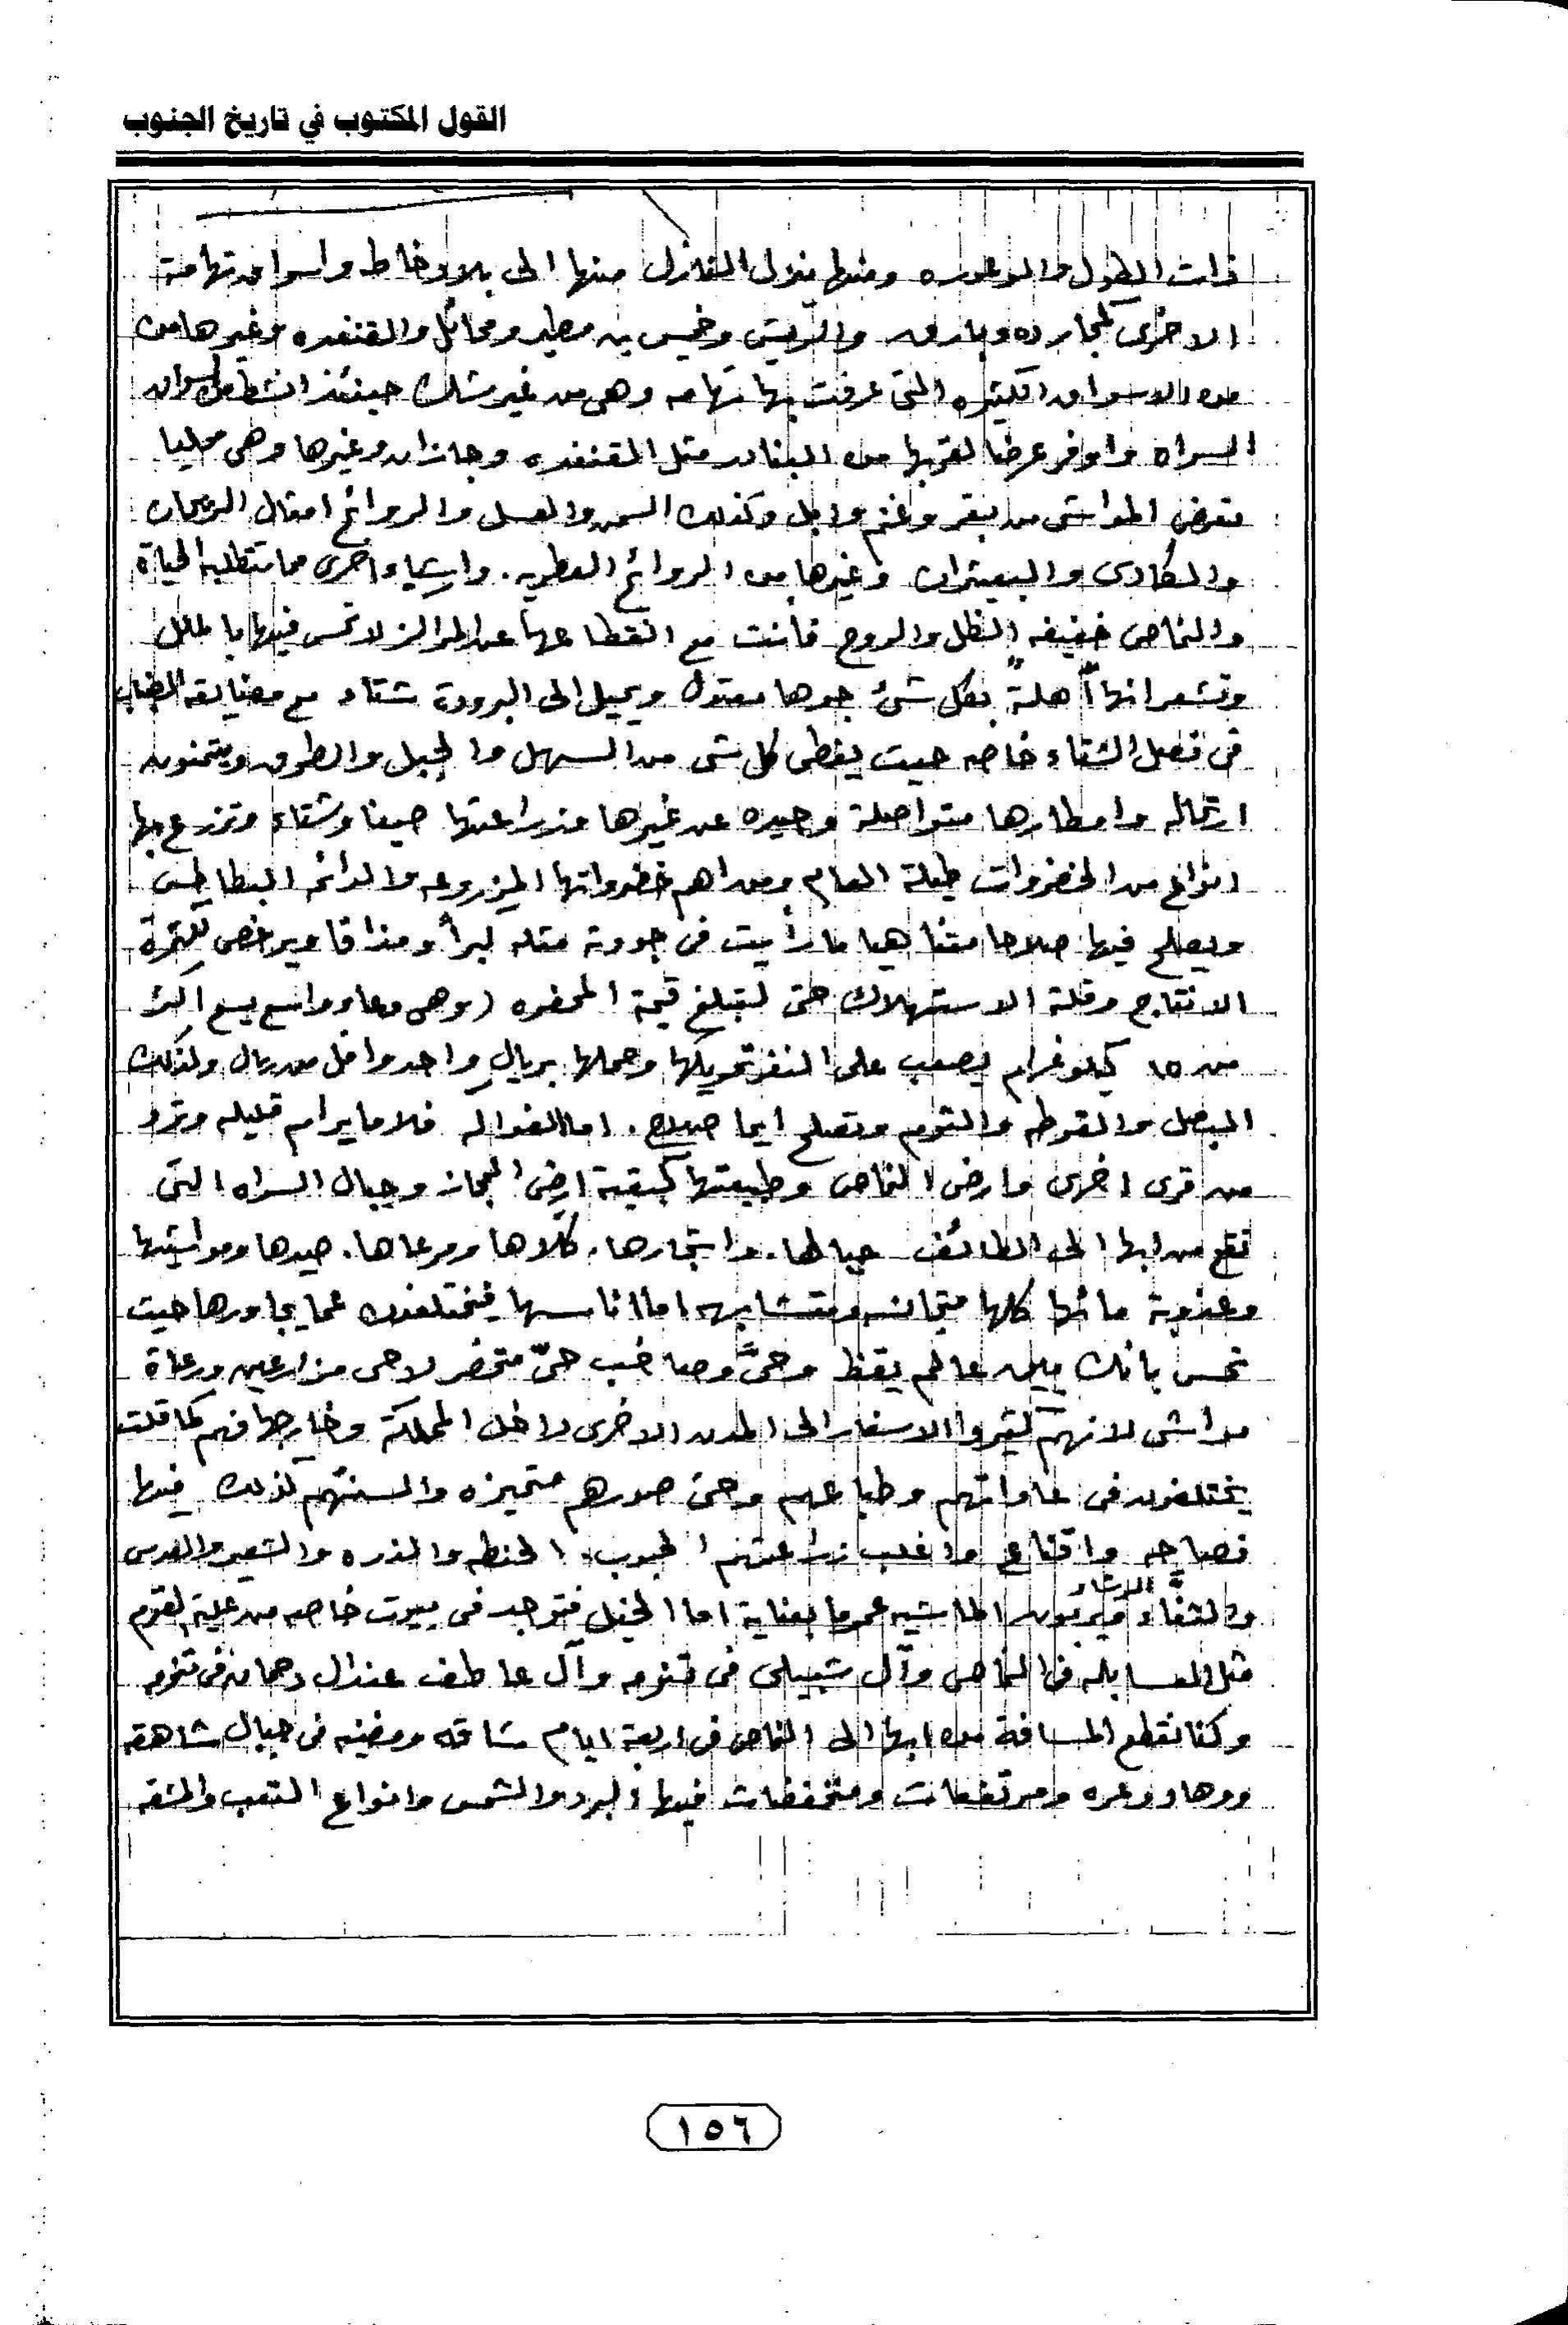 القول المكتوب في تاريخ الجنوب
ذات الطول والوعوره ومنها ينزل النازل منها الى بلاد خاط واسواق تهامة
الاخرى كمجارده وبارق والريش وخميس بن مطير ومحائل والقنفده وغيرها من
من الاسواق الكثيره التى عرفت بها تهامه وهى من غير شك حينئذ انشط من اسواق
السراه واوفر عرضا لقربها من البنادر مثل القنفده وجازان وغيرها وهى محليا
تعرض المواشى من بقر وغنم وابل وكذلك السمن والعسل والروائح امثال الريحان
والكادى والبعيثران وغيرها من الروائح العطريه. واشياء اخرى مما تتطلبه الحياة
والنماص خفيفه الظل والروح فأنت مع انقطاعها عن المراكز لا تحس فيها بالملل
وتشعر انها آهلة بكل شئ جوها معتدل ويميل الى البرودة شتاء مع مضايقة الضباب
فى فصل الشتاء خاصه حيث يغطى كل شى من السهل والجبل والطرق ويتمنون
ارتحاله وامطارها متواصلة وحيده عن غيرها وزراعتها صيفا وشتاء وتزرع بها
انواع من الخضروات طيلة العام ومن اهم خضرواتها المزروعه والدائمه البطاطس
ويصلح فيها صلاحا متناهيا ما رأيت فى جودة مثله كبرأ ومذاقا ويرخص لكثرة
الانتاج وقلة الاستهلاك حتى لتبلغ قيمة المحفره (وهى وعاء واسع يسع اكثر
من ١٥ كيلو غرام يصعب على النفر تحريكها وحملها بريال واحد واقل من ريال وكذلك
البصل والقوطه والثوم وتصلح ايما صلاح. اما الفواكه فلا ما يرام قليله وترد
من قرى اخرى وارض النماص وطبيعتها كبقية ارض الحجاز وجبال السراه التى
تقع من ابها الى الطائف جبالها. واشجارها. كلاها ومرعاها. صيدها ومواشيها
وعذوبة مائها كلها متجانسه ومتشابهه اما اناسها فيختلفون عما يجاورها حيث
تحس بانك بين عالم يقظ وحىّ وصاخب حىّ متحضر لاحى مزارعين ورعاة
مواشى لانهم كثيروا الاسفار الى المدن الاخرى داخل المملكة وخارجها فهم كما قلت
يختلفون فى عاداتهم وطباعهم وحتى صورهم متميزه والسنتهم كذلك فيها
فصاحه واقناع واغلب زراعتهم الحبوب. الحنطه والذره والشعير والعدس
الرشاد
والثفاء ويربون الماشيه عموما بعناية اما الخيل فتوجد فى بيوت خاصه من علية القوم
مثل العسابله فى النماص وآل شبيلى فى تنومه وآل عاطف عندال دحمان فى تنومه
وكنا نقطع المسافة من ابها الى النماص فى اربعة ايام شاقه ومضنيه فى جبال شاهقه
ووهاد وعره ومرتفعات ومنخفضات فيها البرد والشمس وانواع التعب والمشقه
١٥٦